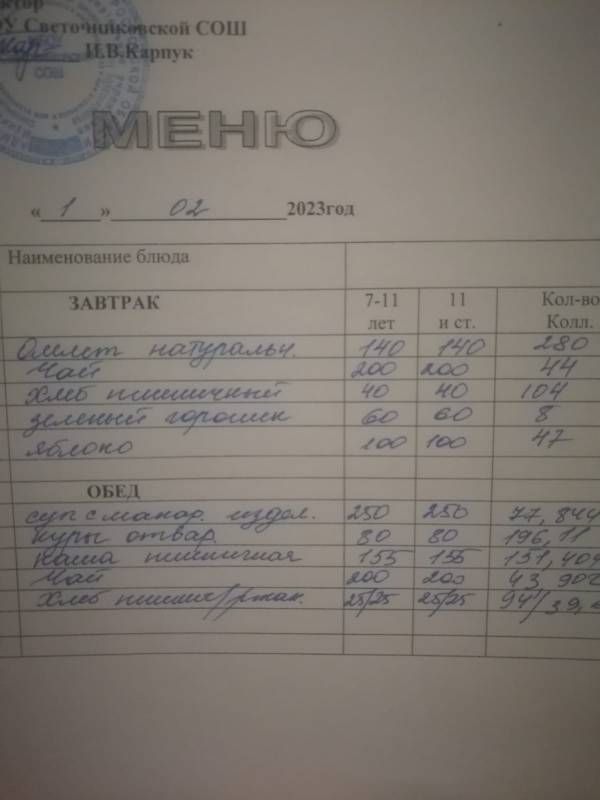 ктор
ОУ Светочниковской СОШ
И.В.Карпук
СОШ
МЕНЮ
« 1 » 02 2023год
Наименование блюда
ЗАВТРАК 7-11 лет 11 и ст. Кол-во Колл.
Омлет натуральн. 140 140 280
Чай 200 200 44
Хлеб пшеничный 40 40 104
зеленый горошек 60 60 8
яблоко 100 100 47
ОБЕД
суп с макар. издел. 250 250 77,844
куры отвар. 80 80 196,11
каша пшеничная 155 155 151,404
Чай 200 200 43,902
Хлеб пшенич/ржан. 25/25 25/25 94/39,